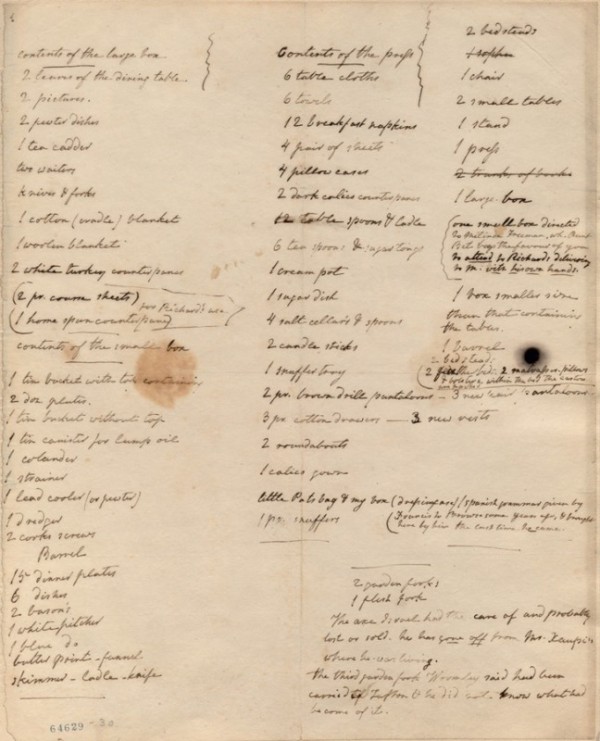 contents of the large box
2 leaves of the dining table.
2 pictures.
2 pewter dishes
1 tea cadder
two waiters
knives & forks
1 cotton (cradle) blanket
1 woolen blanket
2 white turkey counterpanes
(2 pr. course sheets)
1 home spun counterpane)
for Richard's use
contents of the small box
1 tin bucket with top containing
2 doz plates.
1 tin bucket without top
1 tin canister for lamp oil
1 colander
1 strainer
1 lead cooler (or pewter)
1 dredger
2 corks screws
Barrel
15 dinner plates
6 dishes
2 bason's
1 white pitcher
1 blue do
butter print - funnel
skimmer - ladle - knife
64629 - 30
Contents of the press
6 table cloths
6 towels
12 breakfast napkins
4 pair of sheets
4 pillow cases
2 dark calico counterpanes
12 table spoons & ladle
6 tea spoons & sugar tongs
1 cream pot
1 sugar dish
4 salt-cellars & spoons
2 candle sticks
1 snuffer tray
2 pr. brown drill pantaloons - 3 new pantaloons
3 pr cotton drawers - 3 new vests
2 roundabouts
1 calico gown
little Pats bag & my box (dressing case) / spanish grammar given by
Francis some years ago, & brought
here by him the last time he came.
1 pr. snuffers
2 bedsteads
1 sopha
1 chair
2 small tables
1 stand
1 press
2 trunks of books
1 large box
(one small box directed
to
Bet begs the favour of you
to attend to Richard's delivering
to m. with his own hands.
1 box smaller size
than that containing
the tables.
1 barrel
2 bedstead:
2 bed: 2 pillows
& bolster, within the bed
2 garden forks
1 flesh fork
The axe Israel had the care of and probably
lost or sold. he has gone off from Mr.
where he was living.
the third garden fork Wormley said had been
carried to Tufton & he did not know what had
become of it.